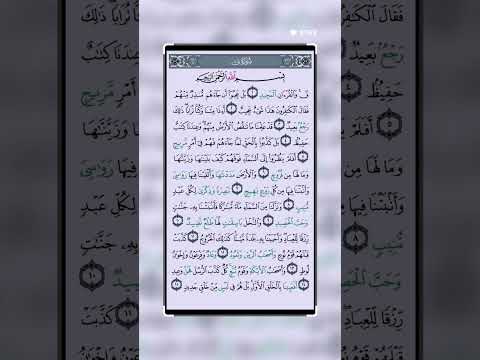 سُورَةُ قٓ
بِسْمِ ٱللَّهِ ٱلرَّحْمَٰنِ ٱلرَّحِيمِ
قٓ وَٱلْقُرْءَانِ ٱلْمَجِيدِ ١ بَلْ عَجِبُوٓا۟ أَن جَآءَهُم مُّنذِرٌ مِّنْهُمْ
فَقَالَ ٱلْكَٰفِرُونَ هَٰذَا شَىْءٌ عَجِيبٌ ٢ أَءِذَا مِتْنَا وَكُنَّا تُرَابًا ذَٰلِكَ
رَجْعٌۢ بَعِيدٌ ٣ قَدْ عَلِمْنَا مَا تَنقُصُ ٱلْأَرْضُ مِنْهُمْ وَعِندَنَا كِتَٰبٌ
حَفِيظٌۢ ٤ بَلْ كَذَّبُوا۟ بِٱلْحَقِّ لَمَّا جَآءَهُمْ فَهُمْ فِىٓ أَمْرٍ مَّرِيجٍ
٥ أَفَلَمْ يَنظُرُوٓا۟ إِلَى ٱلسَّمَآءِ فَوْقَهُمْ كَيْفَ بَنَيْنَٰهَا وَزَيَّنَّٰهَا
وَمَا لَهَا مِن فُرُوجٍ ٦ وَٱلْأَرْضَ مَدَدْنَٰهَا وَأَلْقَيْنَا فِيهَا رَوَٰسِىَ
وَأَنۢبَتْنَا فِيهَا مِن كُلِّ زَوْجٍۭ بَهِيجٍ ٧ تَبْصِرَةً وَذِكْرَىٰ لِكُلِّ عَبْدٍ
مُّنِيبٍ ٨ وَنَزَّلْنَا مِنَ ٱلسَّمَآءِ مَآءً مُّبَٰرَكًا فَأَنۢبَتْنَا بِهِۦ جَنَّٰتٍ
وَحَبَّ ٱلْحَصِيدِ ٩ وَٱلنَّخْلَ بَاسِقَٰتٍ لَّهَا طَلْعٌ نَّضِيدٌ ١٠
رِّزْقًا لِّلْعِبَادِ وَأَحْيَيْنَا بِهِۦ بَلْدَةً مَّيْتًا كَذَٰلِكَ ٱلْخُرُوجُ ١١ كَذَّبَتْ
قَبْلَهُمْ قَوْمُ نُوحٍ وَأَصْحَٰبُ ٱلرَّسِّ وَثَمُودُ ١٢ وَعَادٌ وَفِرْعَوْنُ وَإِخْوَٰنُ
لُوطٍ ١٣ وَأَصْحَٰبُ ٱلْأَيْكَةِ وَقَوْمُ تُبَّعٍ كُلٌّ كَذَّبَ ٱلرُّسُلَ فَحَقَّ وَعِيدِ
١٤ أَفَعَيِينَا بِٱلْخَلْقِ ٱلْأَوَّلِ بَلْ هُمْ فِى لَبْسٍ مِّنْ خَلْقٍ جَدِيدٍ ١٥